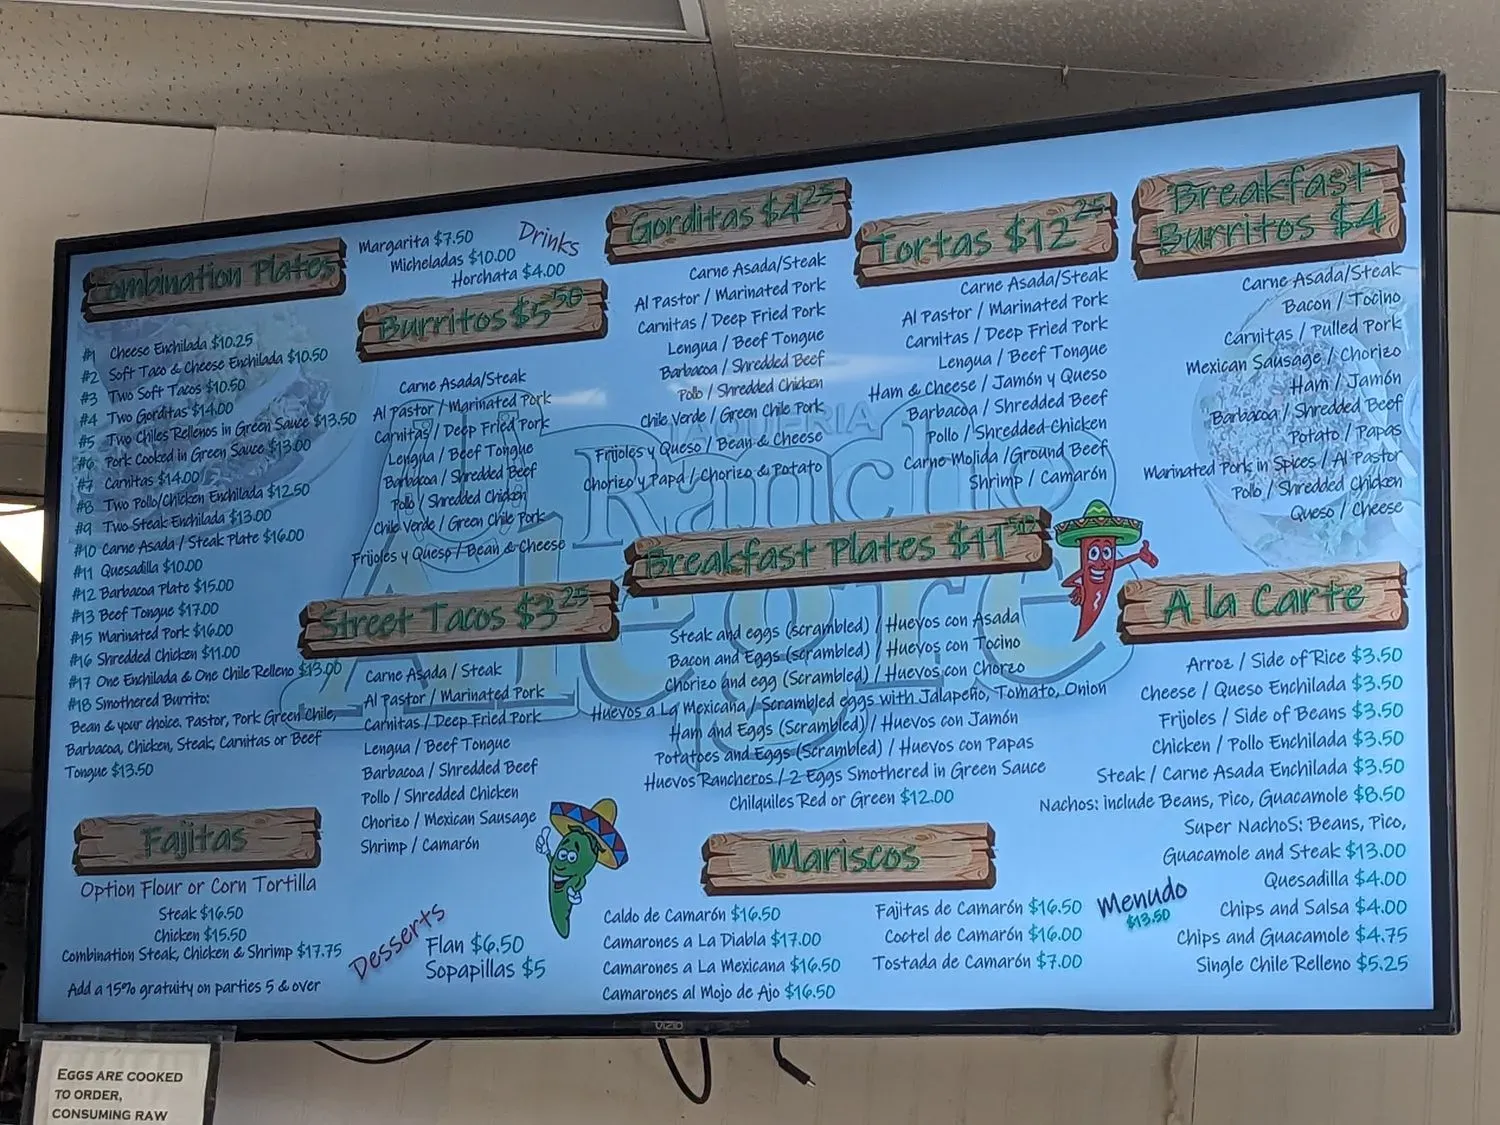 Combination Plates
#1 Cheese Enchilada $10.25
#2 Soft Taco & Cheese Enchilada $10.50
#3 Two Soft Tacos $10.50
#4 Two Gorditas $14.00
#5 Two Chiles Rellenos in Green Sauce $13.50
#6 Pork Cooked in Green Sauce $13.00
#7 Carnitas $14.00
#8 Two Pollo/Chicken Enchilada $12.50
#9 Two Steak Enchilada $13.00
#10 Carne Asada / Steak Plate $16.00
#11 Quesadilla $10.00
#12 Barbacoa Plate $15.00
#13 Beef Tongue $17.00
#15 Marinated Pork $16.00
#16 Shredded Chicken $11.00
#17 One Enchilada & One Chile Relleno $13.00
#18 Smothered Burrito:
Bean & your choice. Pastor, Pork Green Chile,
Barbacoa, Chicken, Steak, Carnitas or Beef
Tongue $13.50
Fajitas
Option Flour or Corn Tortilla
Steak $16.50
Chicken $15.50
Combination Steak, Chicken & Shrimp $17.75
Add a 15% gratuity on parties 5 & over
Drinks
Margarita $7.50
Micheladas $10.00
Horchata $4.00
Burritos $5.50
Carne Asada/Steak
Al Pastor / Marinated Pork
Carnitas / Deep Fried Pork
Lengua / Beef Tongue
Barbacoa / Shredded Beef
Pollo / Shredded Chicken
Chile Verde / Green Chile Pork
Frijoles y Queso / Bean & Cheese
Street Tacos $3.25
Carne Asada / Steak
Al Pastor / Marinated Pork
Carnitas / Deep Fried Pork
Lengua / Beef Tongue
Barbacoa / Shredded Beef
Pollo / Shredded Chicken
Chorizo / Mexican Sausage
Shrimp / Camarón
Desserts
Flan $6.50
Sopapillas $5
Gorditas $4.25
Carne Asada/Steak
Al Pastor / Marinated Pork
Carnitas / Deep Fried Pork
Lengua / Beef Tongue
Barbacoa / Shredded Beef
Pollo / Shredded Chicken
Chile Verde / Green Chile Pork
Frijoles y Queso / Bean & Cheese
Chorizo y Papa / Chorizo & Potato
Tortas $12.25
Carne Asada/Steak
Al Pastor / Marinated Pork
Carnitas / Deep Fried Pork
Lengua / Beef Tongue
Ham & Cheese / Jamón y Queso
Barbacoa / Shredded Beef
Pollo / Shredded Chicken
Carne Molida /Ground Beef
Shrimp / Camarón
Rancho
Alegre
Breakfast Plates $11.50
Steak and eggs (scrambled) / Huevos con Asada
Bacon and Eggs (scrambled) / Huevos con Tocino
Chorizo and egg (Scrambled) / Huevos con Chorzo
Huevos a La Mexicana / Scrambled eggs with Jalapeño, Tomato, Onion
Ham and Eggs (Scrambled) / Huevos con Jamón
Potatoes and Eggs (Scrambled) / Huevos con Papas
Huevos Rancheros / 2 Eggs Smothered in Green Sauce
Chilquiles Red or Green $12.00
Mariscos
Caldo de Camarón $16.50
Camarones a La Diabla $17.00
Camarones a La Mexicana $16.50
Camarones al Mojo de Ajo $16.50
Fajitas de Camarón $16.50
Coctel de Camarón $16.00
Tostada de Camarón $7.00
Menudo
$13.50
Breakfast
Burritos $4
Carne Asada/Steak
Bacon / Tocino
Carnitas / Pulled Pork
Mexican Sausage / Chorizo
Ham / Jamón
Barbacoa / Shredded Beef
Potato / Papas
Marinated Pork in Spices / Al Pastor
Pollo / Shredded Chicken
Queso / Cheese
A la Carte
Arroz / Side of Rice $3.50
Cheese / Queso Enchilada $3.50
Frijoles / Side of Beans $3.50
Chicken / Pollo Enchilada $3.50
Steak / Carne Asada Enchilada $3.50
Nachos: include Beans, Pico, Guacamole $8.50
Super NachoS: Beans, Pico,
Guacamole and Steak $13.00
Quesadilla $4.00
Chips and Salsa $4.00
Chips and Guacamole $4.75
Single Chile Relleno $5.25
VIZIO
EGGS ARE COOKED
TO ORDER,
CONSUMING RAW